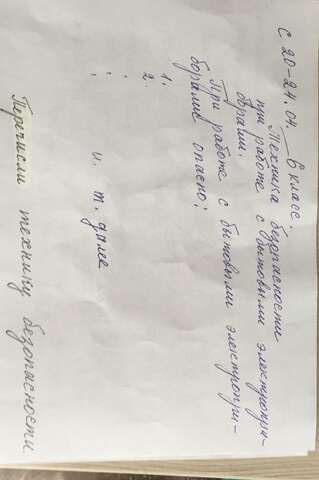 С 20-24.04. 6 класс.
Техника безопасности
при работе с бытовыми электропри-
борами.
При работе с бытовыми электропри-
борами опасно:
1.
2.
:
: и. т. далее
Перечисли технику безопасности.